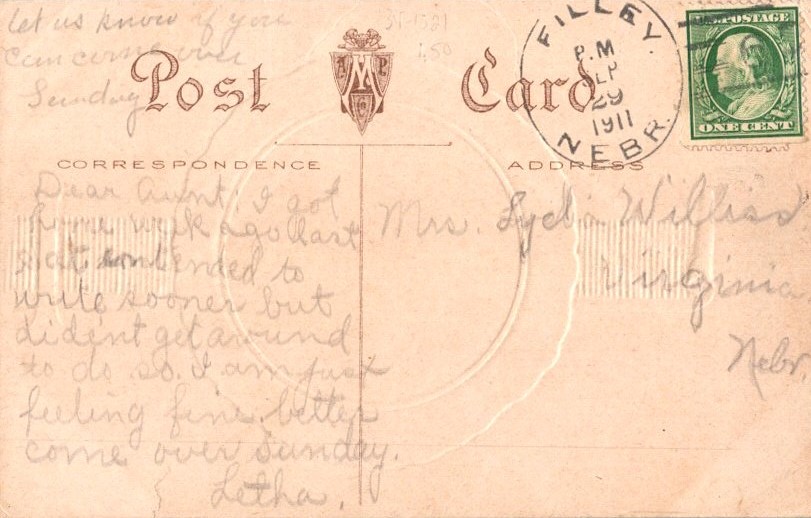 let us know if you
can come over
Sunday
Post Card
CORRESPONDENCE
ADDRESS
FILLEY, NEBR.
P.M
SEP
29
1911
U.S. POSTAGE
ONE CENT
Dear Aunt. I got
home week ago last
sat intended to
write sooner but
dident get around
to do so. I am just
feeling fine. better
come over Sunday.
Letha.
Mrs. Lydia Williss
Virginia
Nebr.